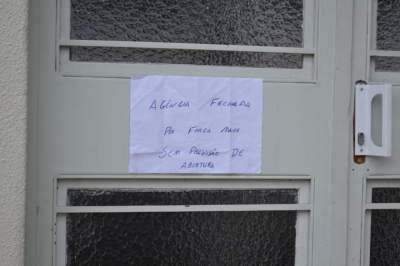 AGÊNCIA FECHADA
POR FORÇA MAIOR
SEM PREVISÃO DE
ABERTURA